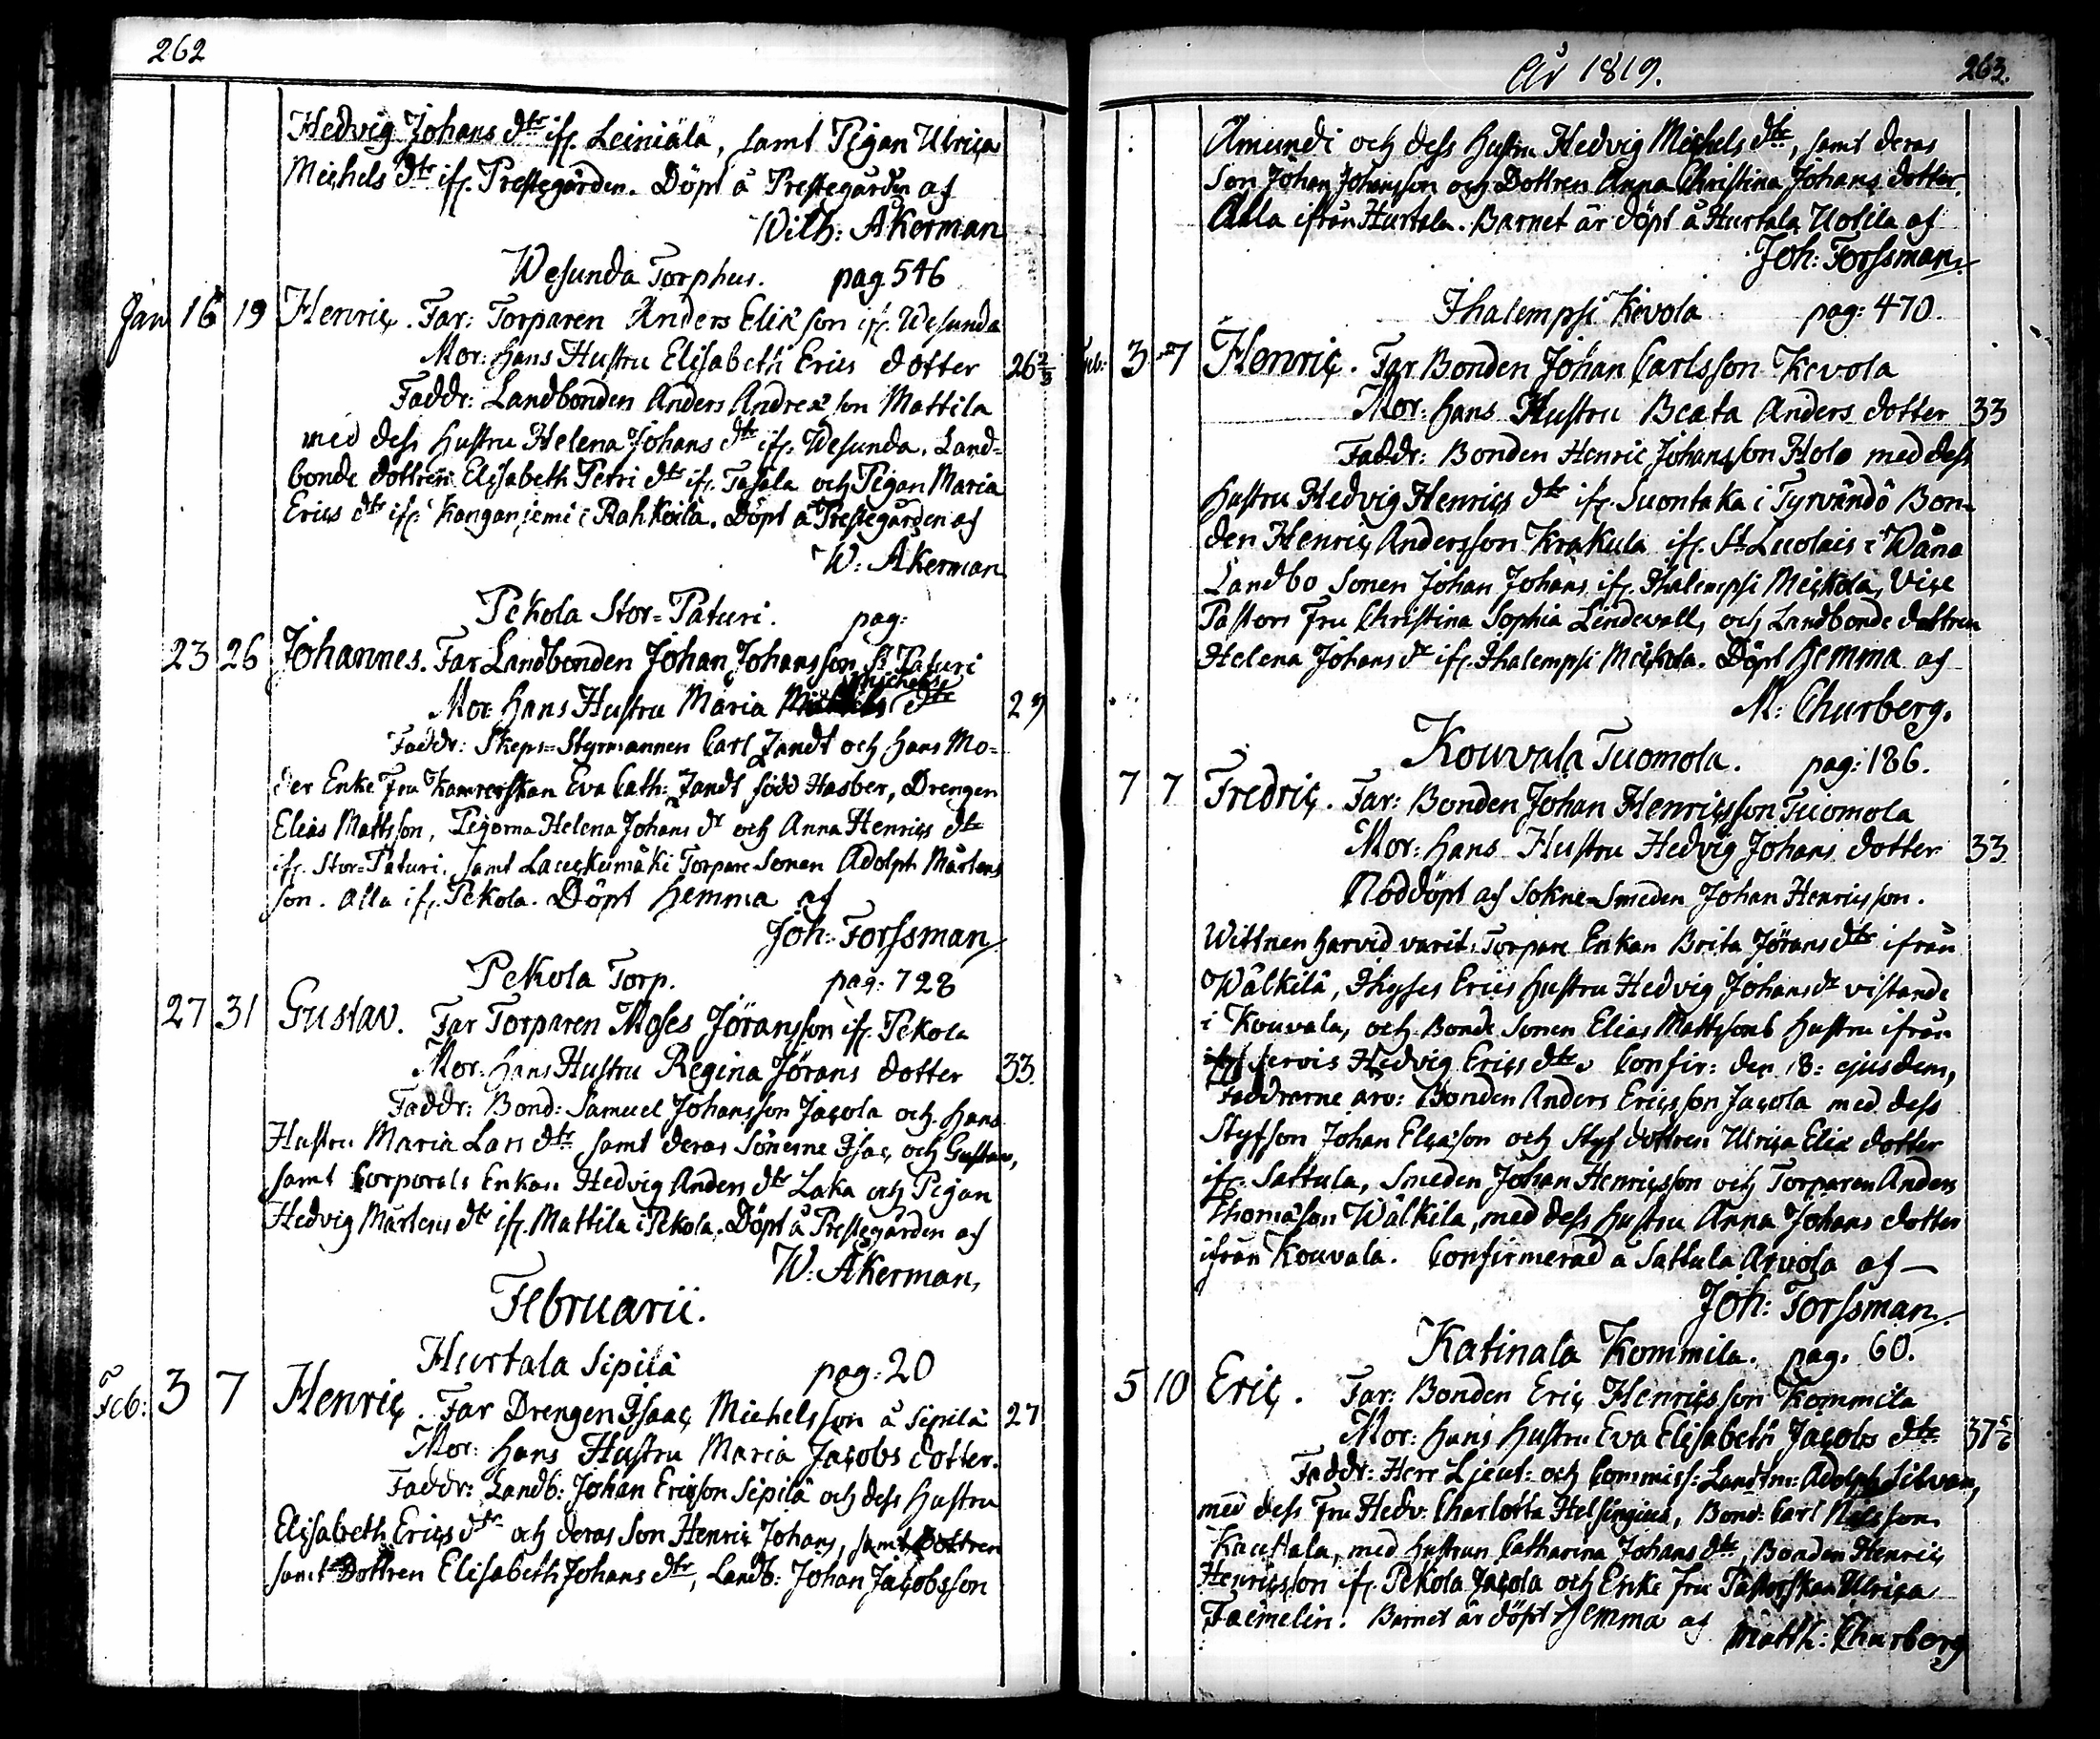 262
Hedvig Johans dtr ifr. Leiniälä, samt Pigan Ulrica
Michels dtr ifr. Prestegården. Döpt å Prestegården af
Wilh: Åkerman
Wesunda Torphus. pag. 546
Jan 16 19 Henric. Far: Torparen Anders Eliæ son ifr. Wesunda
Mor: hans Hustru Elisabeth Erics dotter 26 2/3
Faddr: Landbonden Anders Andreæ son Mattila
med dess hustru Helena Johans dtr ifr. Wesunda, Land=
bonde dottren Elisabeth Petri dtr ifr. Tasala och Pigan Maria
Erics dtr ifr. Kanganiemi i Rahkoila. Döpt å Prestegården af
W: Åkerman
Pekola Stor=Paturi. pag:
23 26 Johannes. Far Landbonden Johan Johansson St. Paturi
Michels
Mor: hans Hustru Maria dtr 29
Faddr: Skeps=Styrmannen Carl Jandt och hans Mo=
der Enke Fru Kamrerskan Eva Cath: Jandt född Hasber, Drengen
Elias Mattsson, Pigorna Helena Johans dr och Anna Henrics dtr
ifr. Stor=Paturi, samt Torpare Sonen Adolph Mårtens
son. alla ifr. Pekola. Döpt hemma af
Joh: Forssman
Pekola Torp. pag: 728
27 31 Gustav. Far Torparen Moses Jöransson ifr. Pekola
Mor: hans Hustru Regina Jörans dotter 33.
Faddr: Bond: Samuel Johansson Jacola och hans
Hustru Maria Lars dtr samt deras Sönerne Isac och Gustav,
samt Corporals Enkan Hedvig Anders dtr Laka och Pigan
Hedvig Mårtens dtr ifr. Mattila i Pekola. Döpt å Prestegården af
W: Åkerman,
Februarii.
Hurtala Sipilä pag: 20
Feb: 3 7 Henric. Far Drengen Isaac Michelsson å Sipilä 27
Mor: hans Hustru Maria Jacobs dotter.
Faddr: Landb: Johan Ericsson Sipilä och dess hustru
Elisabeth Erics dtr och deras Son Henric Johans, samt Dottren
samt Dottren Elisabeth Johans dtr, Landb: Johan Jacobsson
År 1819. 263.
Amundi och dess hustru Hedvig Michels dtr, samt deras
Son Johan Johansson och Dottren Anna Christina Johans dotter.
Alla ifrån Hurtala. Barnet är döpt å Hurtala Uotila af
Joh: Forssman
Ihalempsi Kevola pag: 470.
Feb: 3 7 Henric. Far Bonden Johan Carlsson Kevola
Mor: hans Hustru Beata Anders dotter 33
Faddr: Bonden Henric Johansson Holo med dess
hustru Hedvig Henrics dtr ifr. Suontaka i Tyrvändö Bon=
den Henric Andersson Krakula ifr. St. i Wåna
Landbo Sonen Johan Johans ifr. Ihalempsi Mickola, Vice
Pastors Fru Christina Sophia Lindevall, och Landbonde dottren
Helena Johans dr ifr. Ihalempsi Mickola. Döpt hemma af
M: Churberg.
Kouvala Tuomola. pag: 186.
7 7 Fredric. Far: Bonden Johan Henricsson Tuomola
Mor: hans Hustru Hedvig Johans dotter 33
Nöddöpt af Sokne=Smeden Johan Henricsson.
Wittnen härvid varit: Torpare Enkan Brita Jörans dtr ifrån
Wälkilä, Ihyses Erics hustru Hedvig Johans dr vistande
i Kouvala, och Bonde Sonen Elias Mattssons hustru ifrån
Jervis Hedvig Erics dtr. Confir: den 18: ejusdem,
Faddrarne äro: Bonden Anders Ericsson Jacola med dess
Styfson Johan Eliasson och Styf dottren Ulrica Eliæ dotter
ifr. Sattula, Smeden Johan Henricsson och Torparen Anders
Thomasson Wälkilä, med dess hustru Anna Johans dotter
ifrån Kouvala. Confirmerad å Sattula Arvola af —
Joh: Forssman.
Katinala Kommila. pag. 60.
5 10 Eric. Far: Bonden Eric Henricsson Kommila
Mor: hans hustru Eva Elisabeth Jacobs dtr 37 5/6
Faddr: Herr Lieut: och Commiss: Landtm: Adolph Silvan,
med dess Fru Hedv: Charlotta Helsingius, Bond: Carl Nilsson
Kauttala, med hustrun Catharina Johans dtr, Bonden Henric
Henricsson ifr. Pekola Jacola och Enke fru Pastorskan Ulrica
Barnet är döpt hemma af Matth: Churberg